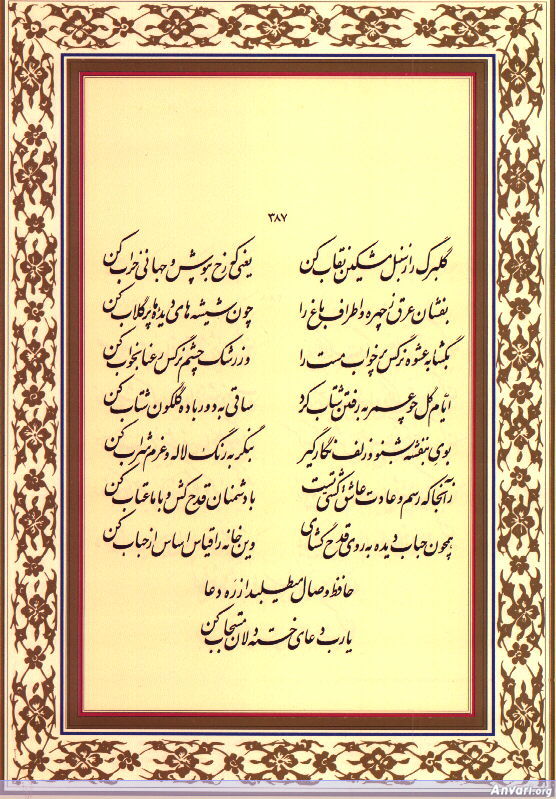 ۳۸۷
گلبرگ را ز سنبل مشکین نقاب کن یعنی که رخ بپوش و جهانی خراب کن
بفشان عرق ز چهره و اطراف باغ را چون شیشه‌های دیده ما پر گلاب کن
بگشا به عشوه نرگس پر خواب مست را وز رشک چشم نرگس رعنا بخواب کن
ایام گل چو عمر به رفتن شتاب کرد ساقی به دور باده گلگون شتاب کن
بوی بنفشه بشنو و زلف نگار گیر بنگر به رنگ لاله و عزم شراب کن
زآنجا که رسم و عادت عاشق‌کشی تست با دشمنان قدح کش و با ما عتاب کن
همچون حباب دیده به روی قدح گشای وین خانه را قیاس اساس از حباب کن
حافظ وصال میطلبد از ره دعا
یارب دعای خسته دلان مستجاب کن
Anvari.org